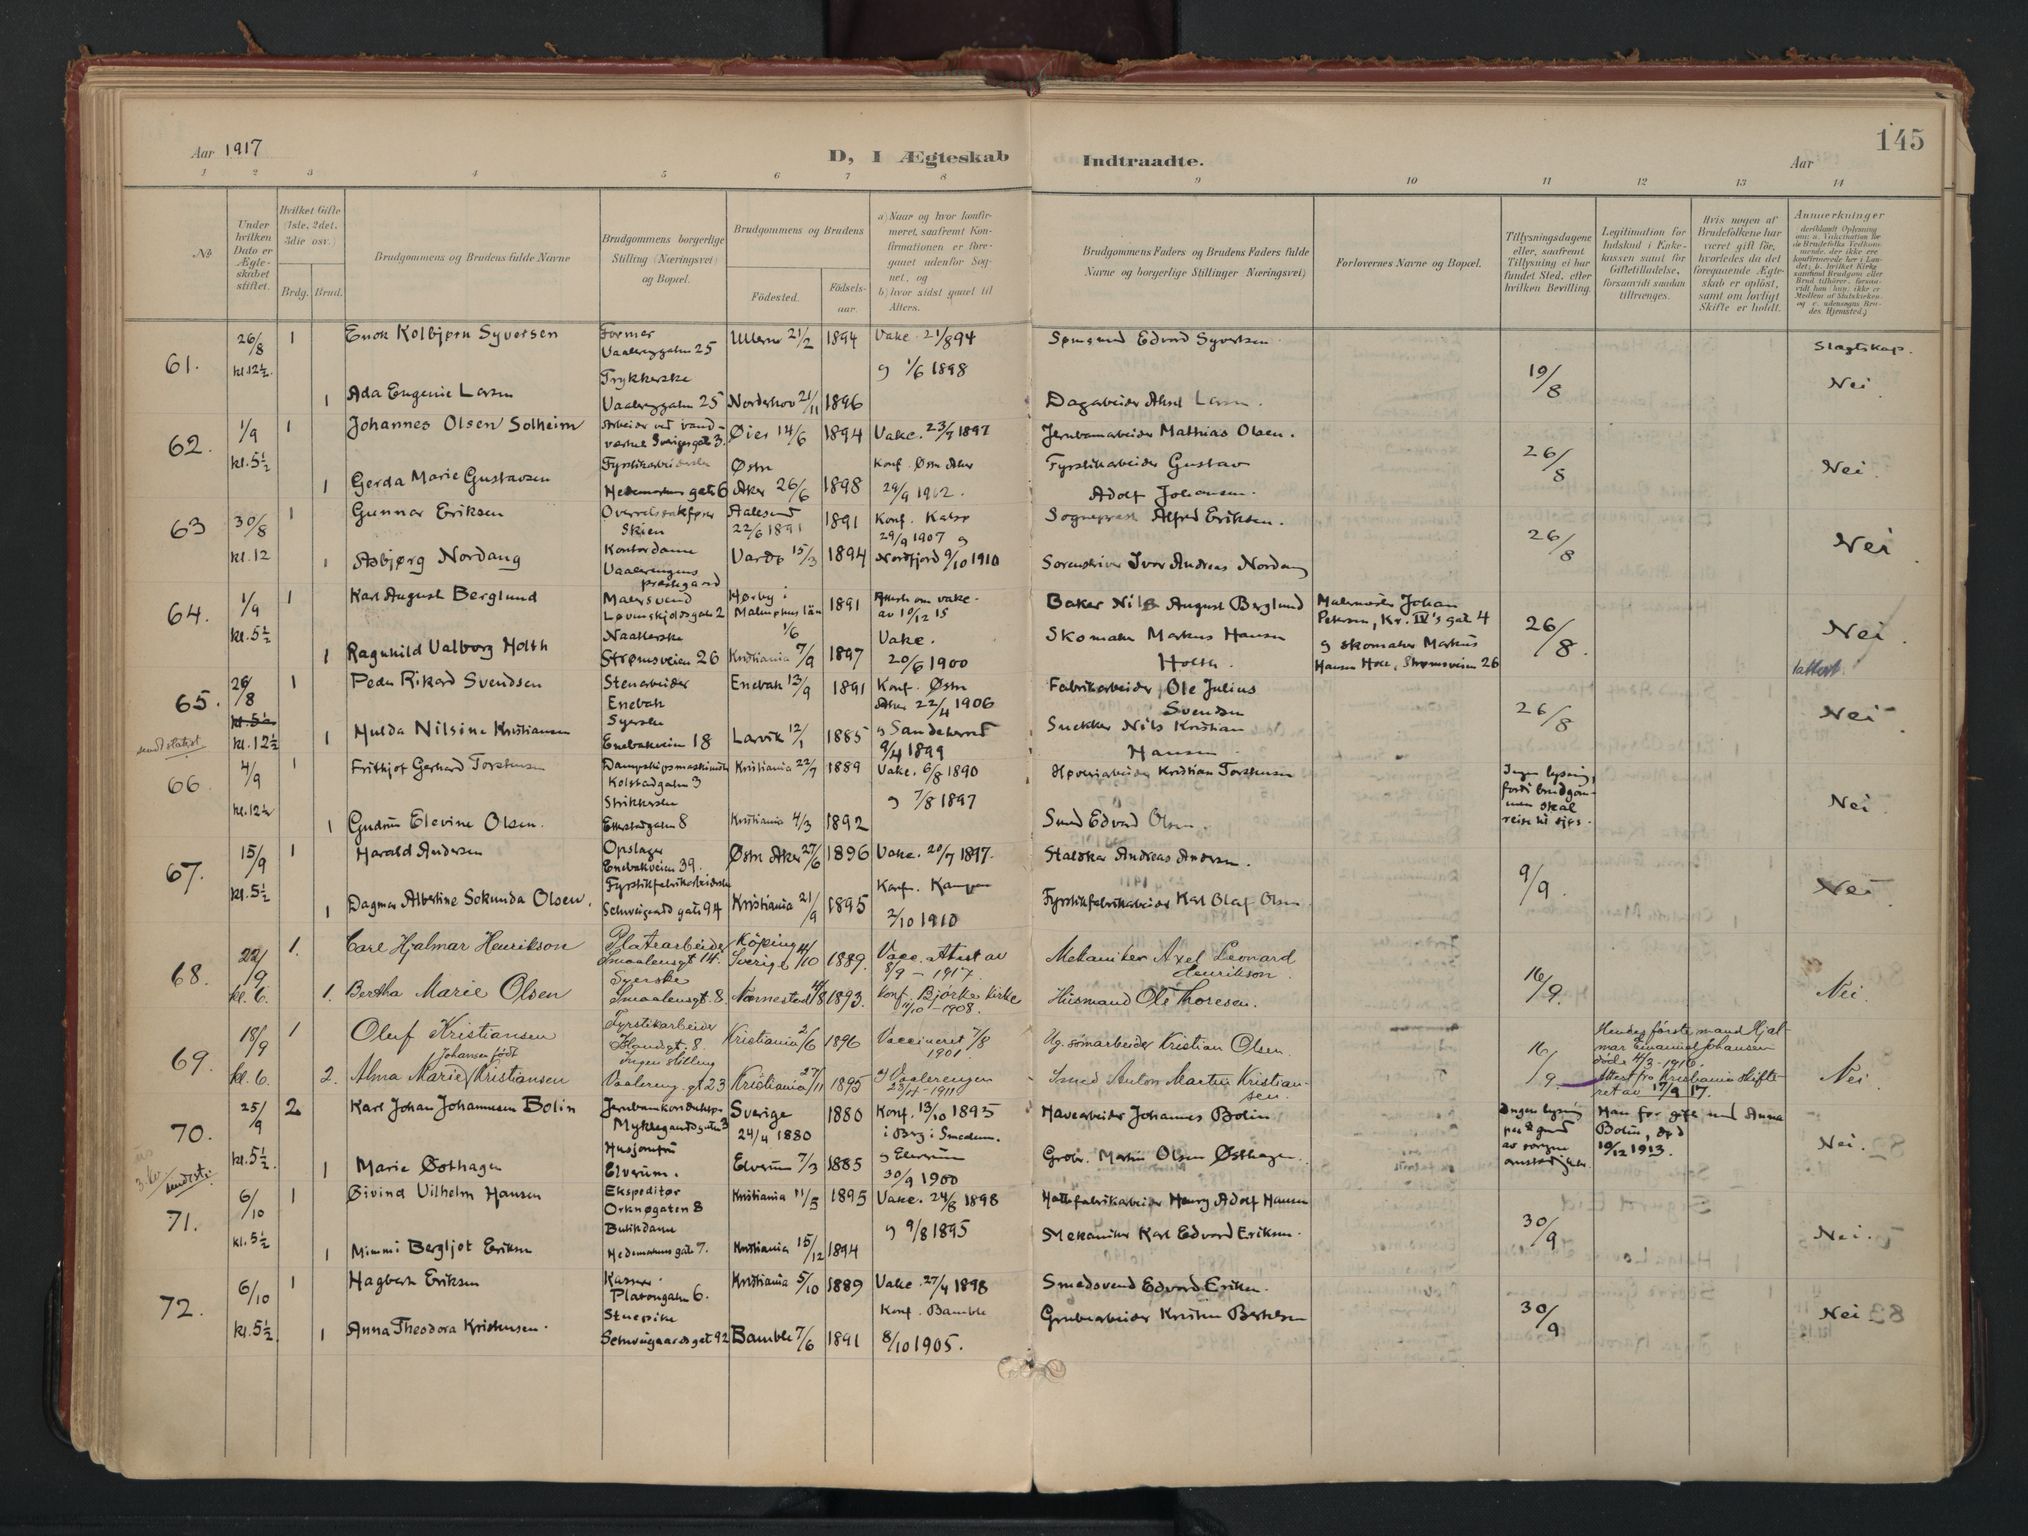 Aar 1917
D, I Ægteskab
Indtraadte.
Aar
145
1 2 3 4 5 6 7 8 9 10 11 12 13 14
No
Under hvilken Dato er Ægteskabet stiftet.
Hvilket Gifte (1ste, 2det, 3die osv.)
Brdg. Brud.
Brudgommens og Brudens fulde Navne
Brudgommens borgerlige Stilling (Næringsvei) og Bopæl.
Brudgommens og Brudens
Fødested.
Fødselsaar.
a) Naar og hvor konfirmeret, saafremt Konfirmationen er foregaaet udenfor Sognet, og
b) hvor sidst gaaet til Alters.
Brudgommens Faders og Brudens Faders fulde Navne og borgerlige Stillinger Næringsvei)
Forlovernes Navne og Bopæl.
Tillysningsdagene eller, saafremt Tillysning ei har fundet Sted, efter hvilken Bevilling.
Legitimation for Indskud i Enkekassen samt for Giftetilladelse, forsaavidt saadan tiltrænges.
Hvis nogen af Brudefolkene har været gift før, hvorledes da det foregaaende Ægteskab er opløst, samt om lovligt Skifte er holdt.
Anmerkninger
61. 26/8 kl. 12½. 1 Enok Kolbjørn Syversen Former Vaalerenggaten 25 Ullern 21/2 1894 Vakc. 21/8 94 Sjømand Edvard Syvertsen Slagtskap.
og 1/6 1898 19/8 Nei
1 Ada Eugenie Larsen Trykkerske Vaalerenggaten 25 Norderhov 21/11 1896 Dagarbeider Larsen.
62. 1/9 kl. 5½ 1 Johannes Olsen Solheim Arbeider ved vandverket Sverigesgate 3. Øier 14/6 1894 Vakc. 23/7 1897 Jernbanearbeider Mathias Olsen. 26/8 Nei
1 Gerda Marie Gustavsen Fyrstikarbeiderske Hedemarkens gate 6 Østre Aker 26/6 1898 Konf. Østre Aker 29/9 1912. Fyrstikarbeider Gustav Adolf Johansen.
63 30/8 kl. 12 1 Gunnar Eriksen Overretssakfører Skien Aalesund 22/6 1891 1891 Konf. 29/9 1907 og Sogneprest Alfred Eriksen. 26/8 Nei
1 Asbjørg Nordang Kontordame Vaalerengens prestegaard Vardø 15/3 1894 Nordfjord 9/10 1910 Sorenskriver Ivar Andreas Nordang
64. 1/9 kl. 5½ 1 Karl August Berglund Malersvend Løvenskjoldsgaten 2 Hørby i Malmøhus län 1/6 1891 Attest om vakc. av 10/12 15 Baker Nils August Berglund Malermester Johan Petersen, Kr. IV's gat 4 26/8. Nei.
1 Ragnhild Valborg Holth Naatlerske Strømsveien 26 Kristiania 7/9 1897 Vakc. 20/6 1900 Skomaker Markus Hansen Holth. og skomaker Markus Hansen Holt, Strømsveien 26
65. 26/8 kl. 5½ kl. 12½ 1 Peder Rikard Svendsen Stenarbeider Enebak Enebak 13/9 1891 Konf. Østre Aker 22/4 1906 Fabrikarbeider Ole Julius Svendsen 26/8 Nei
1 Hulda Nilsine Kristiansen Syerske Enebakveien 18 Larvik 12/1 1885 og Sandeherred 9/4 1899 Snekker Nils Kristian Hansen
66. 4/9 kl. 12½ 1 Frithjof Gerhard Torstensen Dampskipsmaskinist Kolstadgaten 3 Kristiania 22/7 1889 Vakc. 6/8 1890 Høvleriarbeider Kristian Torstensen Ingen lysning, fordi brudgommen skal reise til sjøs. Nei
1 Gudrun Elevine Olsen. Strikkerske Etterstadgaten 8 Kristiania 4/3 1892 og 7/8 1897 Smed Edvard Olsen.
67. 15/9 kl. 5½ 1 Harald Andersen Opslager Enebakveien 39. Østre Aker 27/6 1896 Vakc. 20/7 1897. Staldkar Andreas Andersen. 9/9. Nei
1 Dagmar Albertine Sekunda Olsen. Fyrstikfabrikarbeiderske Schweigaards gate 94 Kristiania 21/9 1895 Konf. Kampen 2/10 1910 Fyrstikfabrikarbeider Karl Olaf Olsen
68. 22/9 kl. 6. 1. Carl Hjalmar Henrikson Platearbeider Smaalensgt 14. Köping Sverige 4/10 1889. Vacc. Attest av 8/9 - 1917. Mekaniker Axel Leonard Henrikson. 16/9. Nei.
1. Bertha Marie Olsen Syerske Smaalensgt. 8. Nærnestad 1893. Konf. Bjørke Kirke 11/10 - 1908. Husmand Ole Thoresen.
69. 18/9 kl. 6. 1 Oluf Kristiansen Fyrstikarbeider 8. Kristiania 2/6 1896 Vaccineret 7/8 1901. Kristian Olsen. 16/9. Hendes første mand Hjalmar Emanuel Johansen døde 4/3 - 1916. Attest fra Kristiania skifteret av 17/9 17. Nei
2. Alma Marie Johansen født Kristiansen Ingen stilling Vaalereng. gt 23 Kristiania 27/11 1895 og Vaalerengen 23/4 - 1911 Smed Anton Martin Kristiansen.
70. 25/9 kl. 5½. 2 Karl Johan Johannesen Bolin Jernbanekonduktør Myklegaardsgaten 3 Sverige 24/4 1880 1880 Konf. 13/10 1895 i Berg i Smedem. Havearbeider Johannes Bolin Ingen lysning paa grund av sorgen omstændigheter. Han før gift med Anna Bolin, død 19/12 1913. Nei.
1 Marie Østhagen Husjomfru Elverum. Elverum 7/3 1885 og Elverum 30/9 1900 Grdbr. Martin Olsen Østhagen.
71. 6/10 kl. 5½ 1 Øivind Vilhelm Hansen Ekspeditør Orknøgaten 8 Kristiania 11/5 1895 Vakc. 24/6 1898 Hattefabrikarbeider Henry Adolf Hansen 30/9 Nei.
1 Mimmi Bergljot Eriksen Butikdame Hedemarkens gate 7. Kristiania 15/12 1894 og 9/8 1895 Mekaniker Karl Edvard Eriksen.
72. 6/10 kl. 5½ 1 Hagbart Eriksen Kasser. Platousgaten 6. Kristiania 5/10 1889 Vakc. 27/4 1898 Smedsvend Edvard Eriksen. 30/9 Nei
1 Anna Theodora Kristensen. Stuepike Schweigaards gat 92 Bamble 7/6 1891 Konf. Bamble 8/10 1905. Grubearbeider Kristen Berntsen